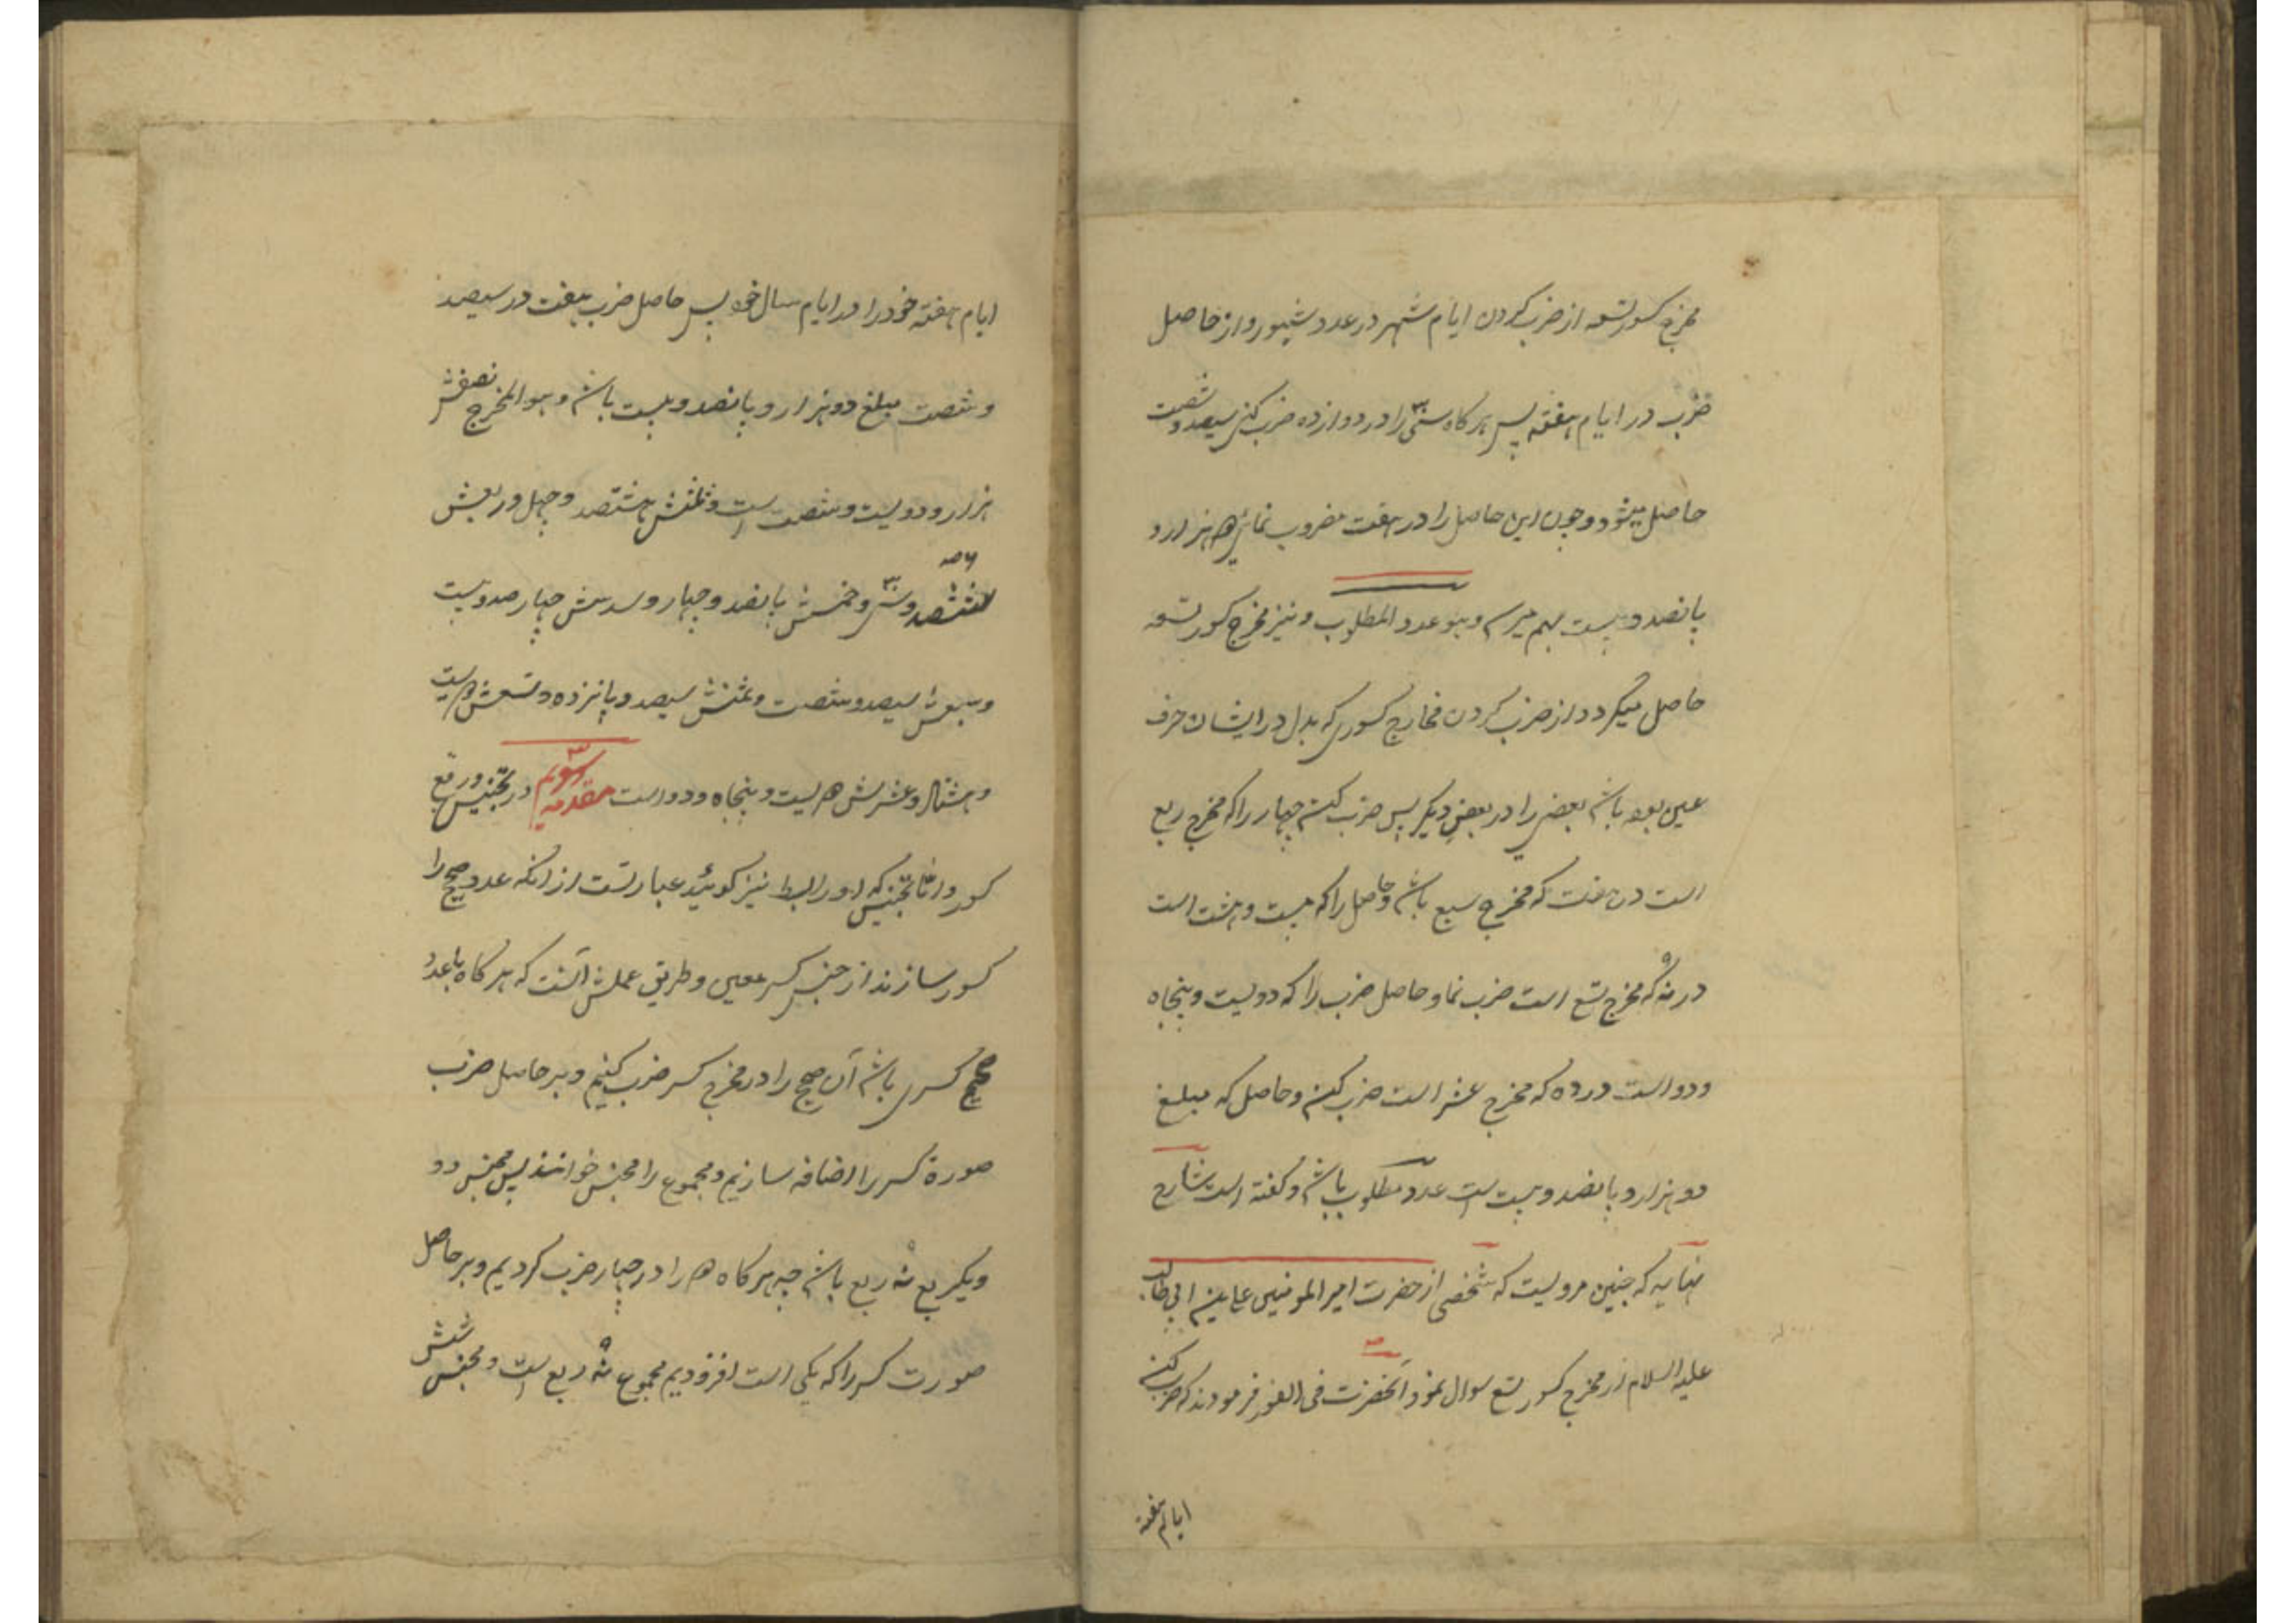 مخرج کسور تسعه از ضرب کردن ایام شهر در عدد شهور و از حاصل
ضرب در ایام هفته پس هرکاه سی را در دوازده ضرب کنی سیصد و شصت
حاصل میشود و چون این حاصل را در هفت مضروب نمائی هزار و
پانصد و بیست بهم میرسد و هو عدد المطلوب و نیز مخرج کسور تسعه
حاصل میکردد از ضرب کردن مخارج کسوری که بدل در ایشان حرف
عین بوده باشد بعضی را در بعض دیکر پس ضرب کن چهار را که مخرج ربع
است در هفت که مخرج سبع باشد و حاصل را که بیست و هشت است
در نه که مخرج تسع است ضرب نما و حاصل ضرب را که دویست و پنجاه
و دو است در ده که مخرج عشر است ضرب کن و حاصل که مبلغ
دو هزار و پانصد و بیست است عدد مطلوب باشد و کفته است شارح
که چنین مرویست که شخصی از حضرت امیر المومنین علی بن ابی طالب
علیه السلام از مخرج کسور تسع سوال نمود آنحضرت فی الفور فرمودند که ضرب کن
ایام هفته
ایام هفته خود را در ایام سال خود پس حاصل ضرب هفت در سیصد
و شصت مبلغ دو هزار و پانصد و بیست باشد و هو المخرج نصفش
هزار و دویست و شصت است و ثلثش هشتصد و چهل و ربعش
ششصد و سی و خمسش پانصد و چهار و سدسش چهار صد و بیست
و سبعش سیصد و شصت و ثمنش سیصد و پانزده و تسعش دویست
و هشتاد و عشرش دویست و پنجاه و دو است مقدمه سویم در تجنیس و رفع
کسور و اما تجنیس که او را بسط نیز کویند عبارتست از آنکه عدد صحیح را
کسور سازند از جنس کسر معین و طریق عملش آنست که هر کاه با عدد
صحیح کسری باشد آن صحیح را در مخرج کسر ضرب کنیم و بر حاصل ضرب
صورة کسر را اضافه سازیم و مجموع را مجنس خوانند پس مجنس دو
و یکربع نه ربع باشد چه هر کاه دو را در چهار ضرب کردیم و بر حاصل
صورت کسر را که یکی است افزودیم مجموع نه ربع است و مجنس شش